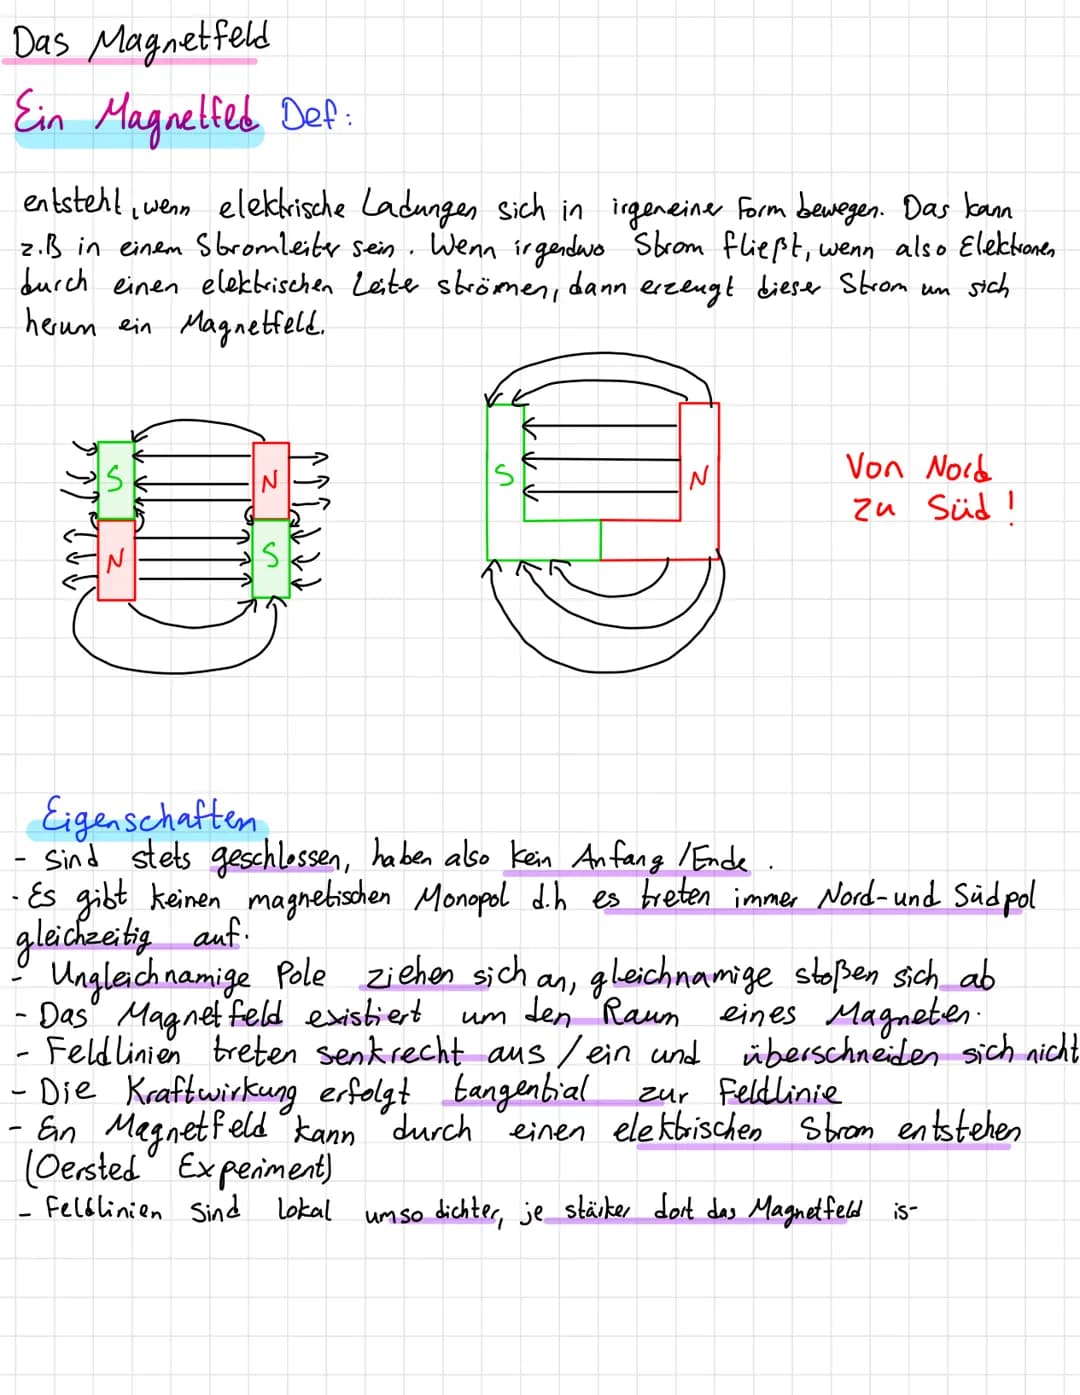 Das Magnetfeld
Ein Magnetfed Def:
entsteht, wenn elektrische Ladungen sich in irgeneiner Form bewegen. Das kann
z.B in einem Stromleiter sein. Wenn irgendwo Strom fließt, wenn also Elektronen
durch einen elektrischen Leite strömen, dann erzeugt dieser Strom um sich
herum ein Magnetfeld.
S N
N S
S N
Von Nord
zu Süd!
Eigenschaften
- Sind stets geschlossen, haben also kein Anfang /Ende.
- Es gibt keinen magnetischen Monopol d.h es treten immer Nord- und Südpol
gleichzeitig auf.
- Ungleichnamige Pole ziehen sich an, gleichnamige stoßen sich ab
- Das Magnetfeld existiert um den Raum eines Magneten.
- Feldlinien treten senkrecht aus / ein und überschneiden sich nicht
- Die Kraftwirkung erfolgt tangential zur Feldlinie
- Ein Magnetfeld kann durch einen elektrischen Strom entstehen
(Oersted Experiment)
- Feldlinien sind lokal umso dichter, je stärker dort das Magnetfeld is-